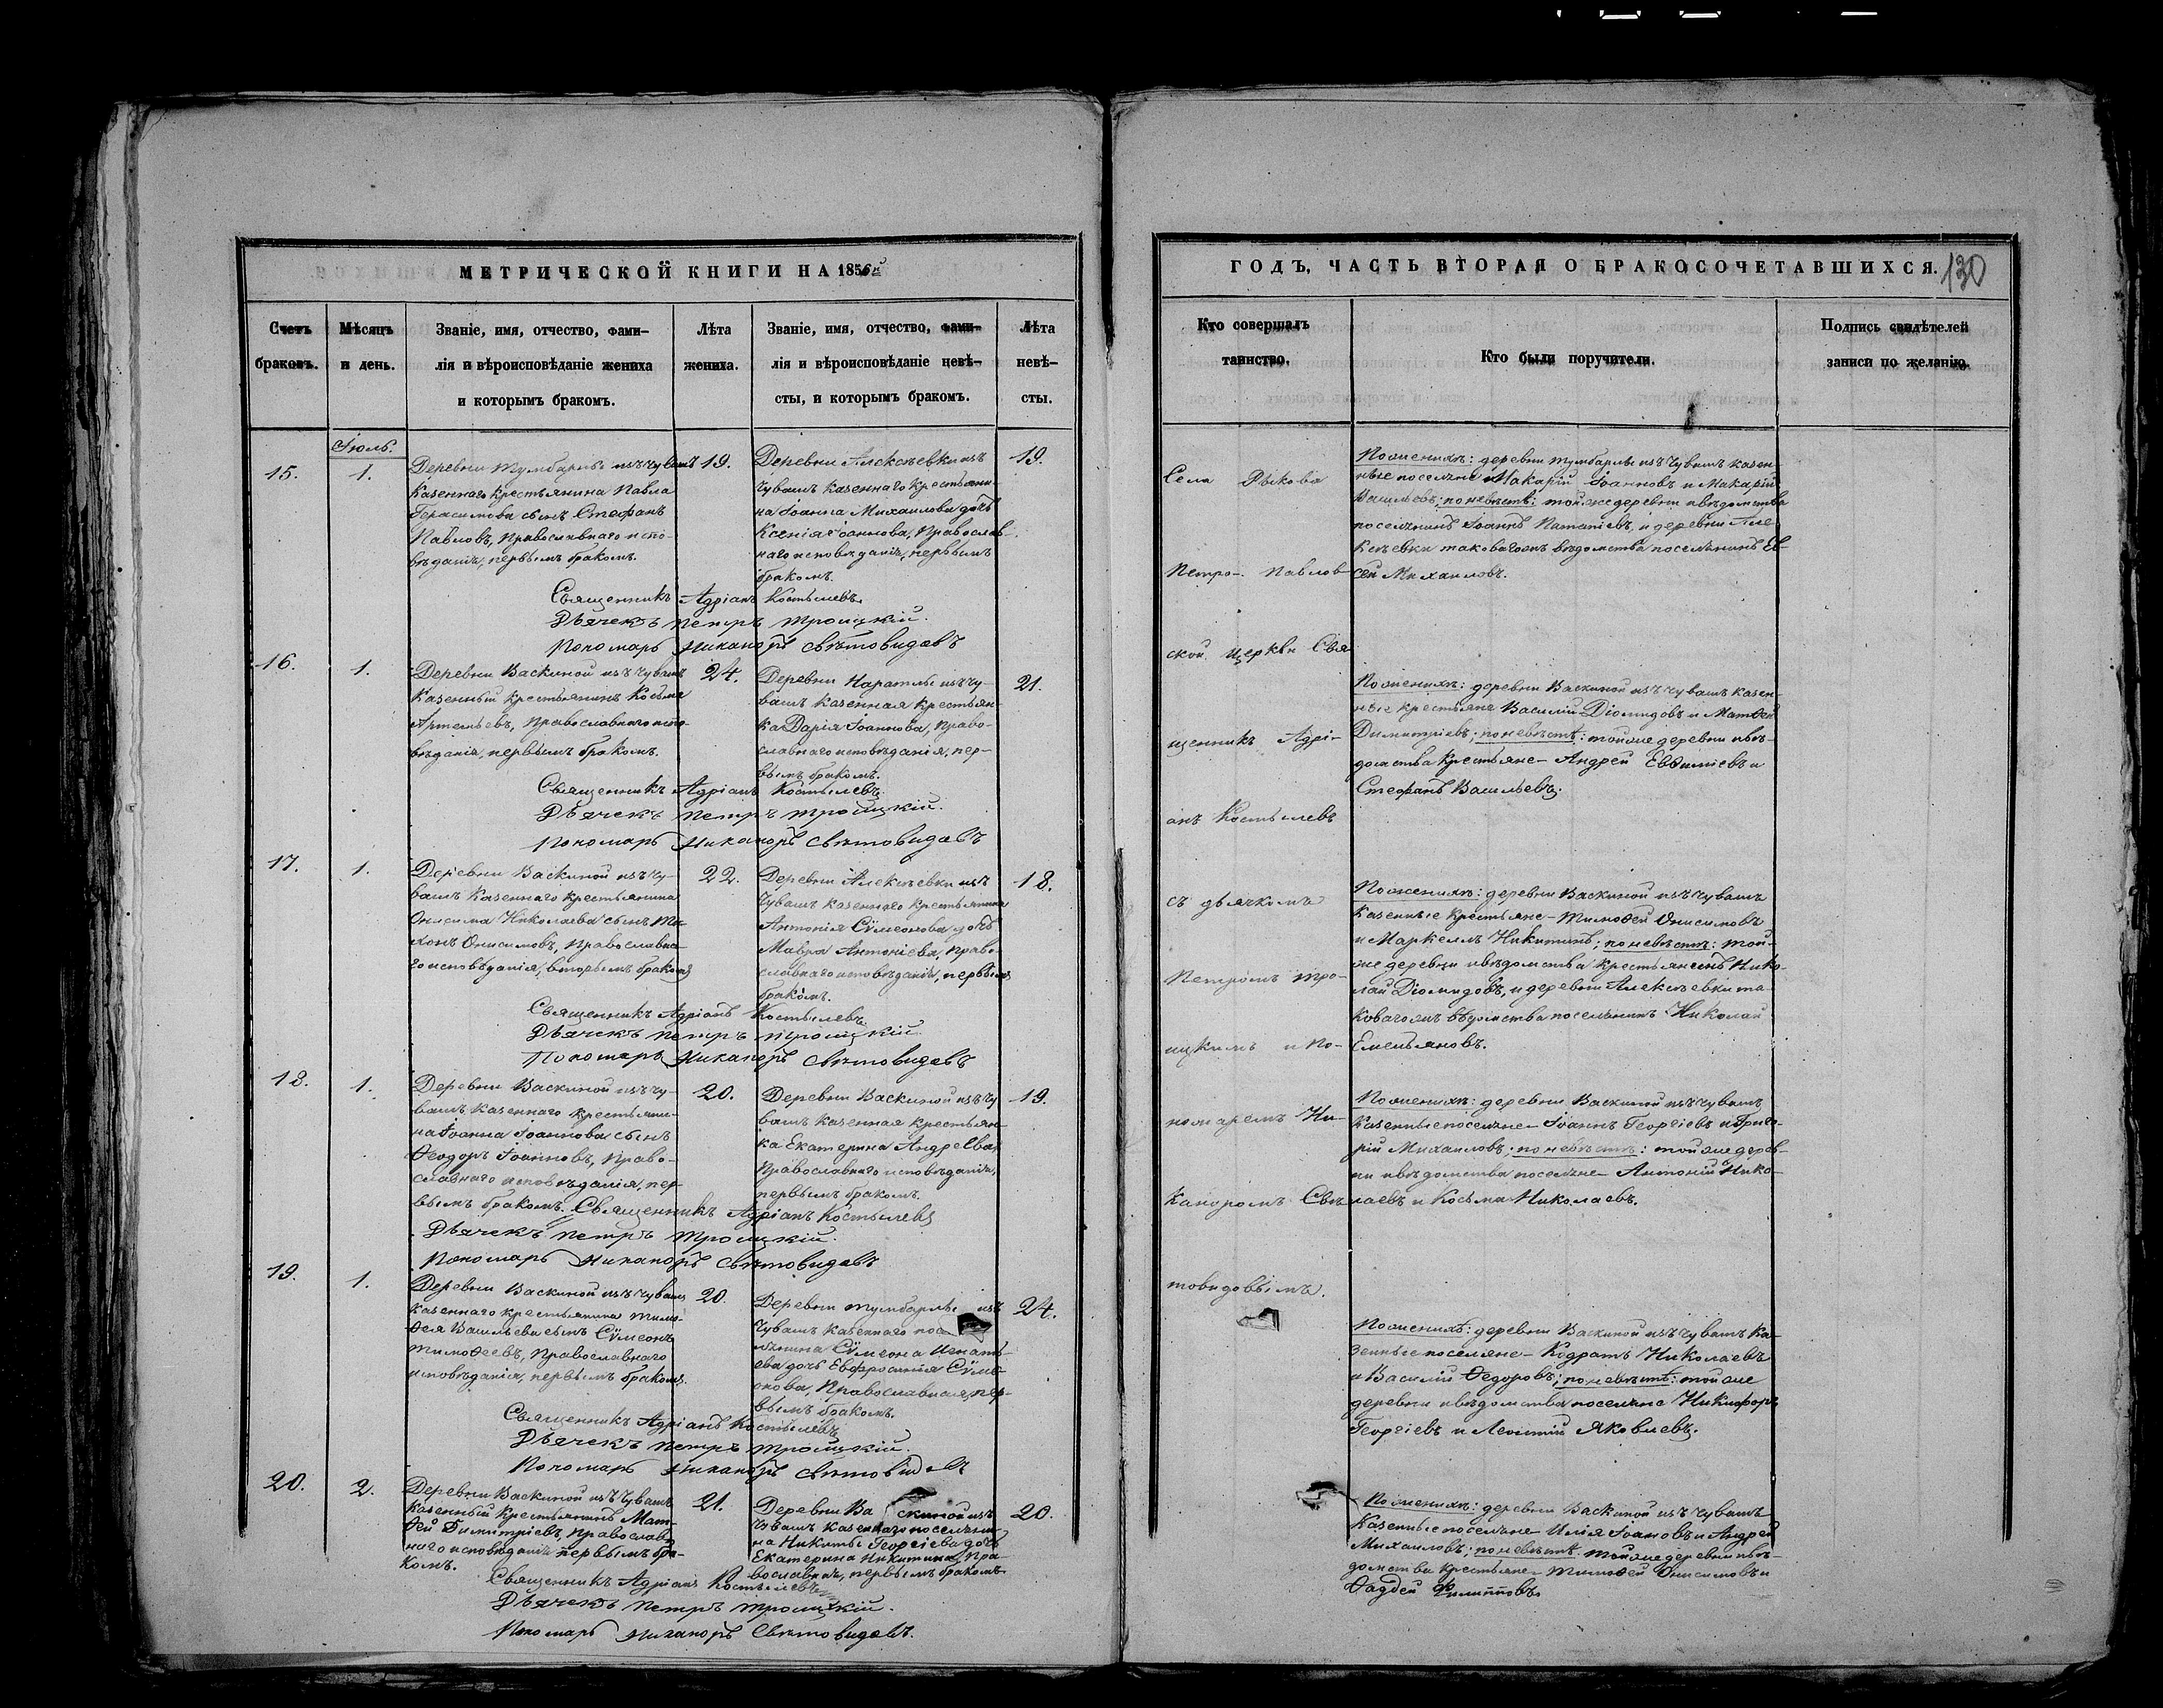 МЕТРИЧЕСКОЙ КНИГИ НА 1856й
Счетъ браковъ.
Мѣсяцъ и день.
Званіе, имя, отчество, фами-
лія и вѣроисповѣданіе жениха
и которымъ бракомъ.
Лѣта жениха.
Званіе, имя, отчество, фами-
лія и вѣроисповѣданіе невѣ-
сты, и которымъ бракомъ.
Лѣта невѣ-
сты.
Іюль.
15.
1.
Деревни Тумбарлы изъ чувашъ
Казеннаго Крестьянина Павла
Герасимова сынъ Стефанъ
Павловъ, Православнаго испо-
вѣданія, первымъ бракомъ.
19.
Деревни Алексѣевки изъ
Чувашъ казеннаго Крестьяни-
на Іоанна Михаилова дочь
Ксенія Іоаннова, Православ-
наго исповѣданія, первымъ
бракомъ.
19.
Священникъ Адріанъ Костылевъ.
Дьячекъ Петръ Троицкій.
Пономарь Никаноръ Свѣтовидовъ
16.
1.
Деревни Васкиной изъ Чувашъ
Казенный крестьянинъ Косьма
Артемьевъ, Православнаго испо-
вѣданія, первымъ бракомъ.
24.
Деревни Наратлы изъ Чу-
вашъ казенная крестьян-
ка Дарія Іоаннова, Право-
славнаго исповѣданія, пер-
вымъ бракомъ.
21.
Священникъ Адріанъ Костылевъ.
Дьячекъ Петръ Троицкій.
Пономарь Никаноръ Свѣтовидовъ
17.
1.
Деревни Васкиной изъ Чу-
вашъ Казеннаго крестьянина
Онисима Николаева сынъ Ти-
хонъ Онисимовъ, Православна-
го исповѣданія, вторымъ бракомъ
22.
Деревни Алексѣевки изъ
Чувашъ казеннаго Крестьянина
Антонія Сѵмеонова дочь
Мавра Антоніева, Право-
славнаго исповѣданія, первымъ
бракомъ.
18.
Священникъ Адріанъ Костылевъ.
Дьячекъ Петръ Троицкій.
Пономарь Никаноръ Свѣтовидовъ
18.
1.
Деревни Васкиной изъ Чу-
вашъ казеннаго крестьяни-
на Іоанна Іоаннова сынъ
Ѳеодоръ Іоанновъ, Право-
славнаго исповѣданія, пер-
вымъ бракомъ. Священникъ Адріанъ Костылевъ
20.
Деревни Васкиной изъ Чу-
вашъ казенная крестьян-
ка Екатерина Андреева
Православнаго исповѣданія,
первымъ бракомъ.
19.
Дьячекъ Петръ Троицкій.
Пономарь Никаноръ Свѣтовидовъ
19.
1.
Деревни Васкиной изъ Чувашъ
казеннаго крестьянина Тимо-
ѳея Васильева сынъ Сѵмеонъ
Тимоѳеевъ, Православнаго
исповѣданія, первымъ бракомъ.
20.
Деревни Тумбарлы изъ
Чувашъ казеннаго посе-
лянина Сѵмеона Игнать-
ева дочь Евфросинія Сѵме-
онова, Православная, пер-
вымъ бракомъ.
24.
Священникъ Адріанъ Костылевъ
Дьячекъ Петръ Троицкій.
Пономарь Никаноръ Свѣтовидовъ
20.
2.
Деревни Васкиной изъ Чувашъ
Казенный Крестьянинъ Мат-
ѳей Димитріевъ, Православ-
наго исповѣданія первымъ бра-
комъ.
21.
Деревни Васкиной изъ
Чувашъ казеннаго поселяни-
на Никиты Георгіева дочь
Екатерина Никитина, Пра-
вославная, первымъ бракомъ
20.
Священникъ Адріанъ Костылевъ
Дьячекъ Петръ Троицкій.
Пономарь Никаноръ Свѣтовидовъ.
ГОДЪ, ЧАСТЬ ВТОРАЯ О БРАКОСОЧЕТАВШИХСЯ.
130
Кто совершалъ
таинство.
Кто были поручители.
Подпись свидѣтелей
записи по желанію.
Села Рыкова
Петро-Павлов-
ской церкви Свя-
щенникъ Адрі-
анъ Костылевъ
съ дьячкомъ
Петромъ Тро-
ицкимъ и По-
номаремъ Ни-
каноромъ Свѣ-
товидовымъ.
По женихѣ: деревни Тумбарлы изъ Чувашъ казен-
ные поселяне Макарій Іоанновъ и Макарій
Васильевъ; по невѣстѣ: той же деревни и вѣдомства
поселянинъ Іоаннъ Потапіевъ, и деревни Але-
ксѣевки таковагожъ вѣдомства поселянинъ Ев-
сей Михаиловъ.
По женихѣ: деревни Васкиной изъ Чувашъ казен-
ные крестьяне Василій Діомидовъ и Матѳей
Димитріевъ; по невѣстѣ: той же деревни и вѣ-
домства крестьяне Андрей Евѳиміевъ и
Стефанъ Васильевъ.
По женихѣ: деревни Васкиной изъ Чувашъ
Казенные крестьяне Тимоѳей Онисимовъ
и Маркеллъ Никитинъ; по невѣстѣ: той-
же деревни и вѣдомства крестьянинъ Нико-
лай Діомидовъ, и деревни Алексѣевки та-
ковагожъ вѣдомства поселянинъ Николай
Емельяновъ.
По женихѣ: деревни Васкиной изъ Чувашъ
Казенные поселяне Іоаннъ Георгіевъ и Григо-
рій Михаиловъ; по невѣстѣ: той же дерев-
ни и вѣдомства поселяне Антоній Нико-
лаевъ и Косьма Николаевъ.
По женихѣ: деревни Васкиной изъ Чувашъ ка-
зенные поселяне Кодратъ Николаевъ
и Василій Ѳедоровъ; по невѣстѣ: той же
деревни и вѣдомства поселяне Никифоръ
Георгіевъ и Леонтій Яковлевъ.
По женихѣ: деревни Васкиной изъ Чувашъ
Казенные поселяне Илія Іоанновъ и Андрей
Михаиловъ; по невѣстѣ: той же деревни и вѣ-
домства крестьяне Тимоѳей Онисимовъ и
Ѳаддей Филипповъ.